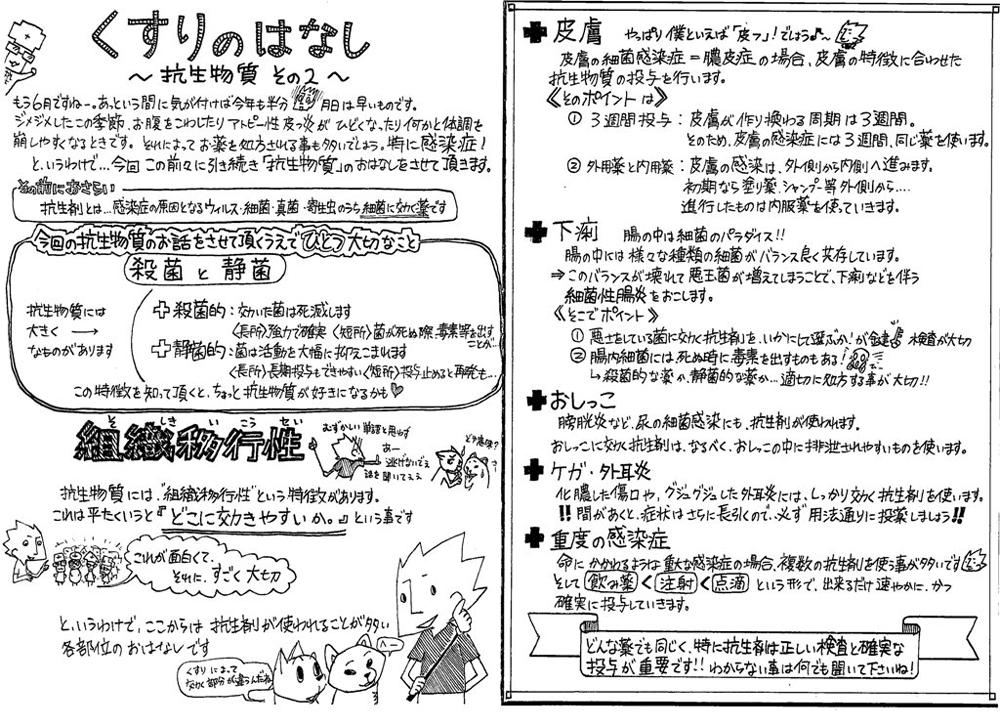 くすりのはなし
～ 抗生物質 その2 ～
もう6月ですねー。あっという間に気が付けば今年も半分 月日は早いものです。
ジメジメしたこの季節、お腹をこわしたり アトピー性皮フ炎が ひどくなったり何かと体調を
崩しやすくなるときです。それによってお薬を処方される事も多いでしょう。特に感染症！
というわけで…今回 この前々に引き続き「抗生物質」のおはなしをさせて頂きます。
その前におさらい
抗生剤とは…感染症の原因となるウィルス・細菌・真菌・寄生虫のうち細菌に効く薬です
今回の抗生物質のお話をさせて頂くうえでひとつ大切なこと
殺菌と静菌
抗生物質には
大きく →
なものがあります
殺菌的：効いた菌は死滅します
〈長所〉強力で確実 〈短所〉菌が死ぬ際、毒素等を出す
ことが…
静菌的：菌は活動を大幅に抑えこまれます
〈長所〉長期投与もできやすい〈短所〉投与止めると再発も…
この特徴を知って頂くと、ちょっと抗生物質が好きになるかも♡
そしきいこうせい
組織移行性
むずかしい単語と思わず
あー
逃げないでぇ
話を聞いてぇぇ
抗生物質には、"組織移行性"という特徴があります。
これは平たくいうと『どこに効きやすいか。』という事です
これが面白くて、
それに、すごく大切
というわけで、ここからは 抗生剤が使われることが多い
各部位の おはなしです
へー
くすりによって
効く部分が違うんだね
皮膚 やっぱり僕といえば「皮フ」！でしょう♪
皮膚の細菌感染症＝膿皮症の場合、皮膚の特徴に合わせた
抗生物質の投与を行います。
《そのポイントは》
① 3週間投与：皮膚が作り換わる周期は3週間。
そのため、皮膚の感染症には3週間、同じ薬を使います。
② 外用薬と内用薬：皮膚の感染は、外側から内側へ進みます。
初期なら塗り薬、シャンプー等 外側から…。
進行したものは内服薬を使っていきます。
下痢 腸の中は細菌のパラダイス!!
腸の中には様々な種類の細菌がバランス良く共存しています。
⇒このバランスが壊れて悪玉菌が増えてしまうことで、下痢などを伴う
細菌性腸炎をおこします。
《そこでポイント》
① 悪さをしている菌に効く抗生剤を、いかにして選ぶか！が 検査が大切
② 腸内細菌には死ぬ時に毒素を出すものもある！
↳殺菌的な薬か、静菌的な薬か… 適切に処方する事が大切!!
おしっこ
膀胱炎など、尿の細菌感染にも、抗生剤が使われます。
おしっこに効く抗生剤は、なるべく、おしっこの中に排泄されやすいものを使います。
ケガ・外耳炎
化膿した傷口や、グジュグジュした外耳炎には、しっかり効く抗生剤を使います。
!!間があくと、症状はさらに長引くので、必ず 用法通りに投薬しましょう!!
重度の感染症
命にかかわるような重大な感染症の場合、複数の抗生剤を使う事が多いです
そして 飲み薬＜注射＜点滴 という形で、出来るだけ速やかに、かつ
確実に投与していきます。
どんな薬でも同じく、特に抗生剤は正しい検査と確実な
投与が重要です!! わからない事は何でも聞いて下さいね！